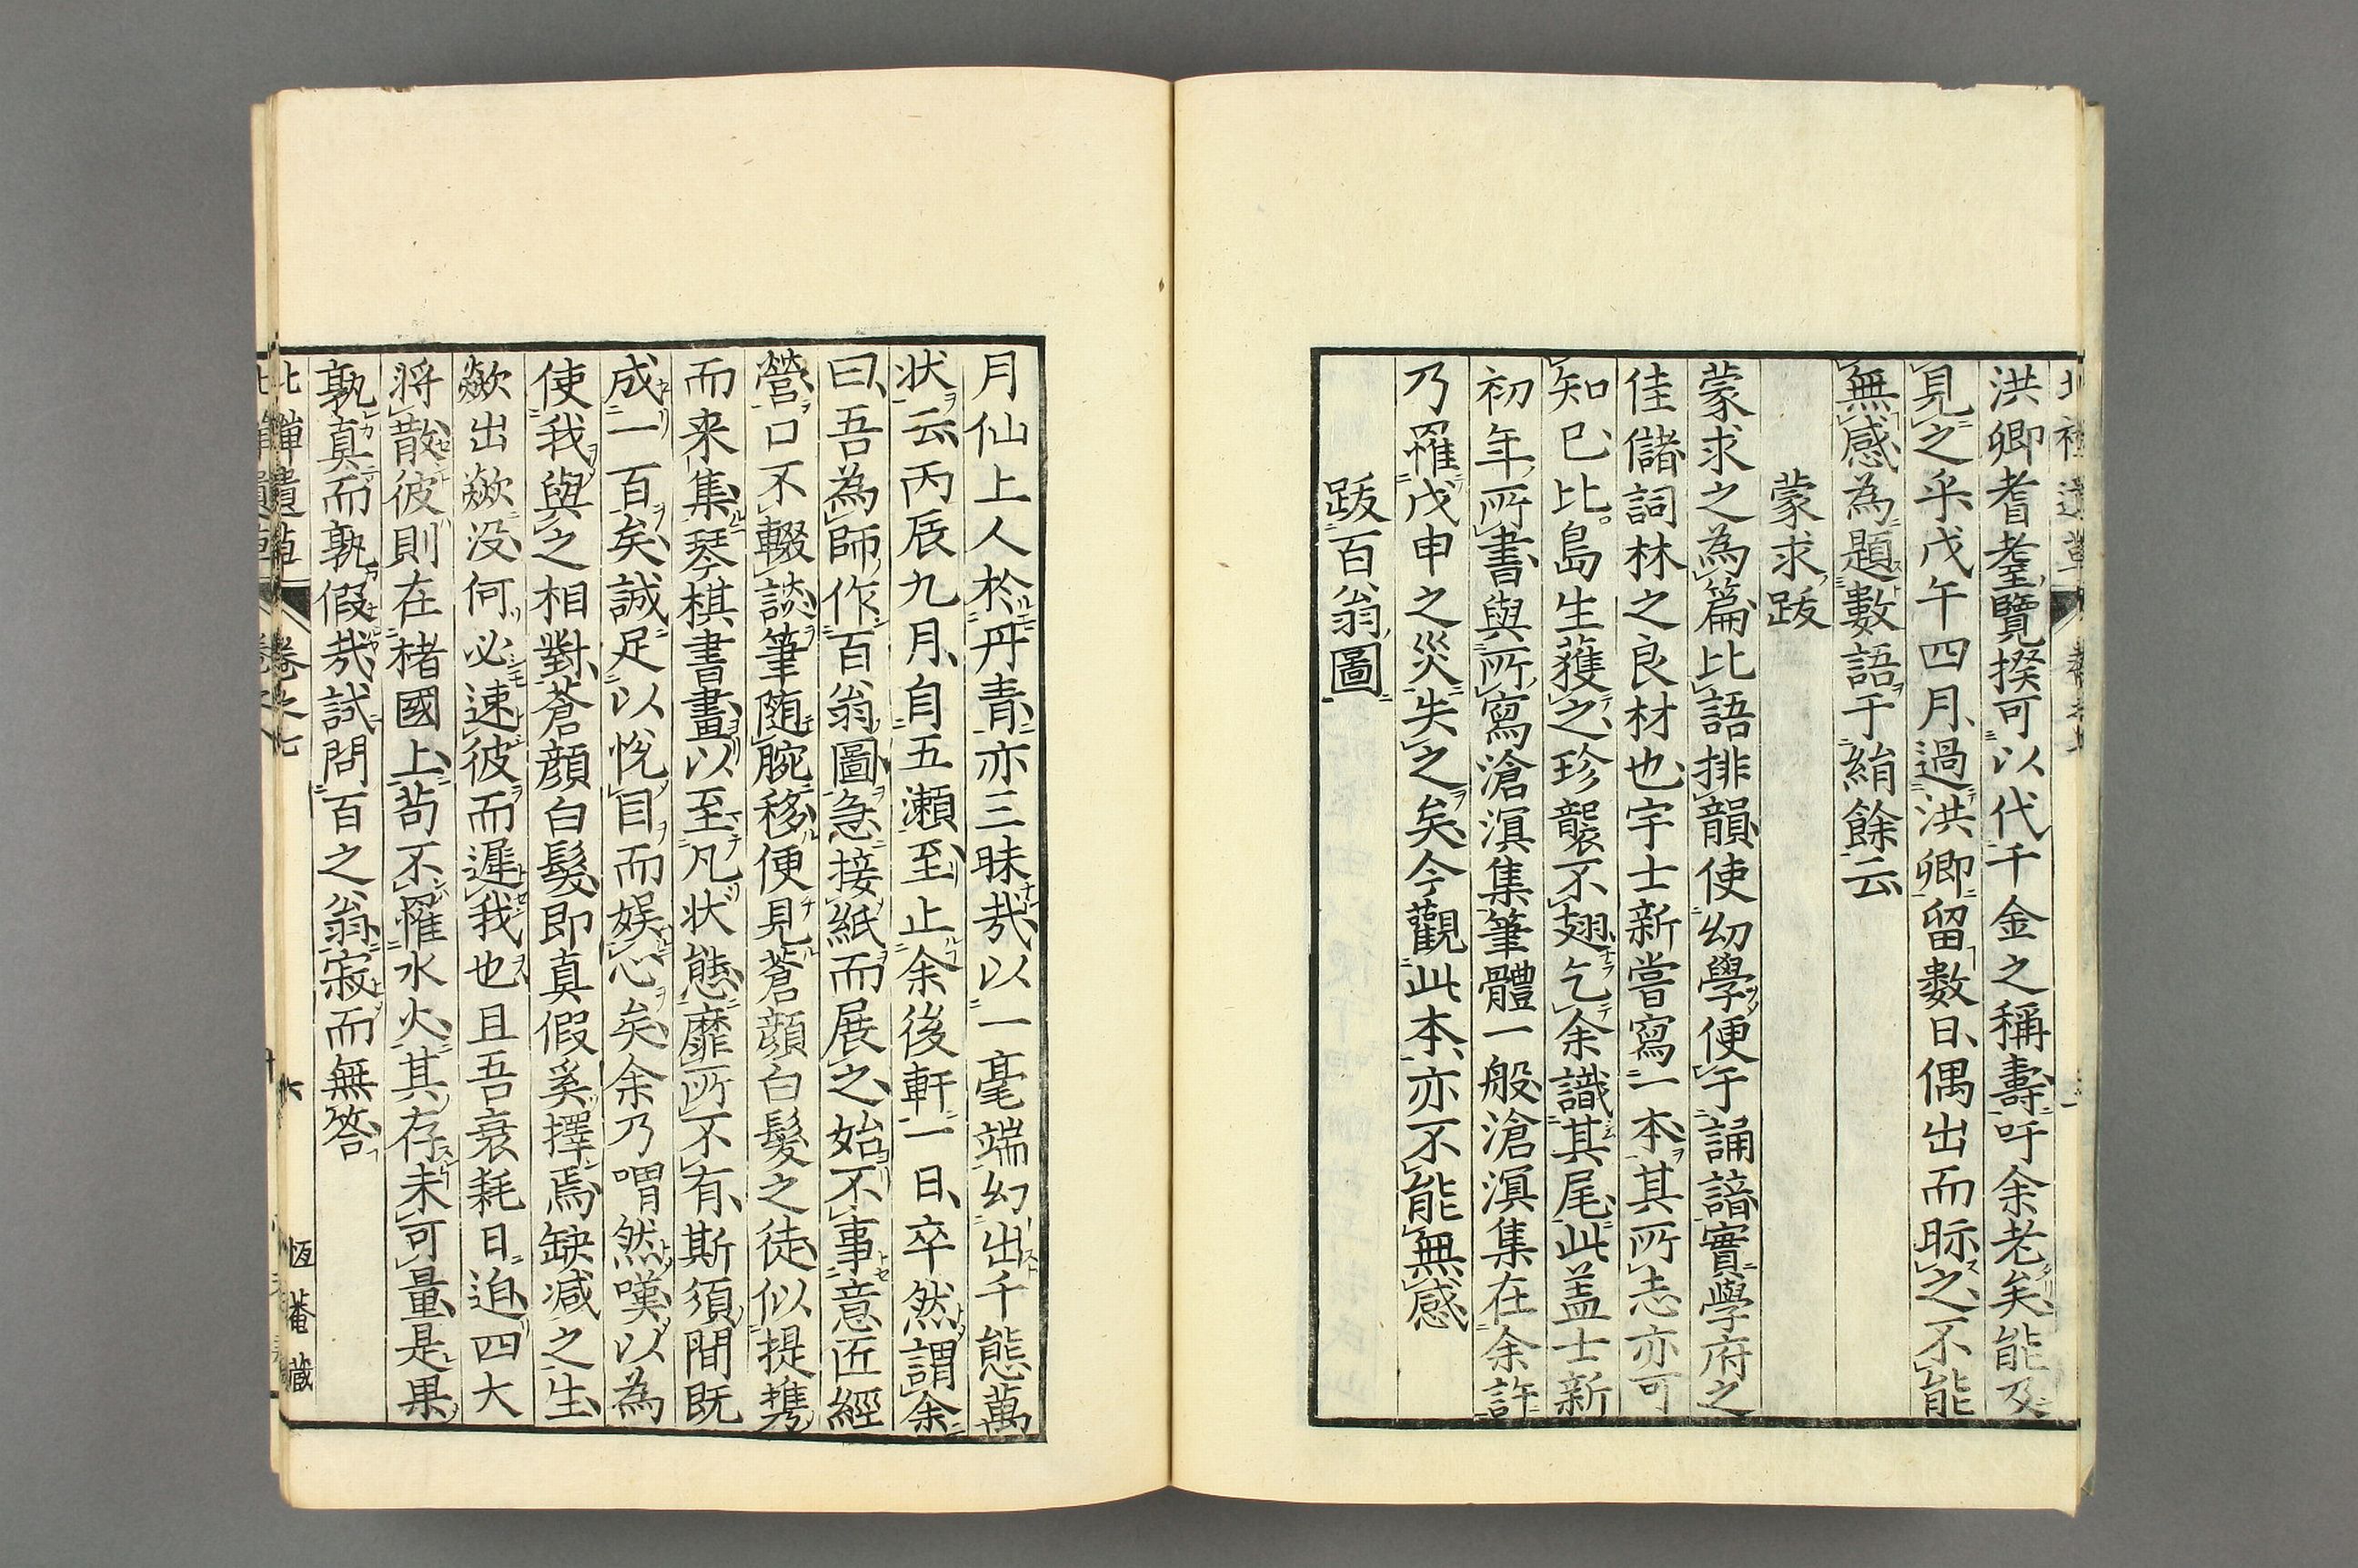 洪卿耆耋覽揆可以代千金之稱壽吁余老矣能及
見之乎戊午四月過洪卿留數日偶出而眎之不能
無感為題數語于絹餘云
蒙求跋
蒙求之為篇比語排韻使幼學便于誦諳實學府之
佳儲詞林之良材也宇士新嘗寫一本其所志亦可
知已比島生獲之珍襲不翅乞余識其尾此盖士新
初年所書與所寫滄溟集筆體一般滄溟集在余許
乃罹戊申之災失之矣今觀此本亦不能無感
跋百翁圖
月仙上人於丹青亦三昧哉以一毫端幻出千態萬
状云丙辰九月自五瀬至止余後軒一日卒然謂余
曰吾為師作百翁圖急接紙而展之始不事意匠經
營口不輟談筆随腕移便見蒼顔白髮之徒似提携
而来集琴棋書畫以至凡状態靡所不有斯須間既
成一百矣誠足以悦目而娯心矣余乃喟然嘆以為
使我與之相對蒼顔白髮即真假奚擇焉缺減之生
歘出歘没何必速彼而遲我也且吾衰耗日迫四大
將散彼則在楮國上苟不罹水火其存未可量是果
孰真而孰假哉試問百之翁寂而無答
北禪遺草
卷之七
六
恆菴藏